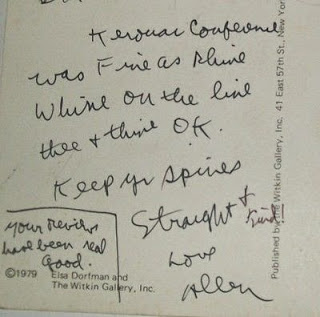 Kerouac Conference
was Fine as Rhine
Whine on the line
thee + thine OK.
Keep yr spines
Straight &
kind!!
Love
Allen
Your reviews
have been real
good.
©1979 Elsa Dorfman and
The Witkin Gallery, Inc.
Published by The Witkin Gallery, Inc. 41 East 57th St., New York